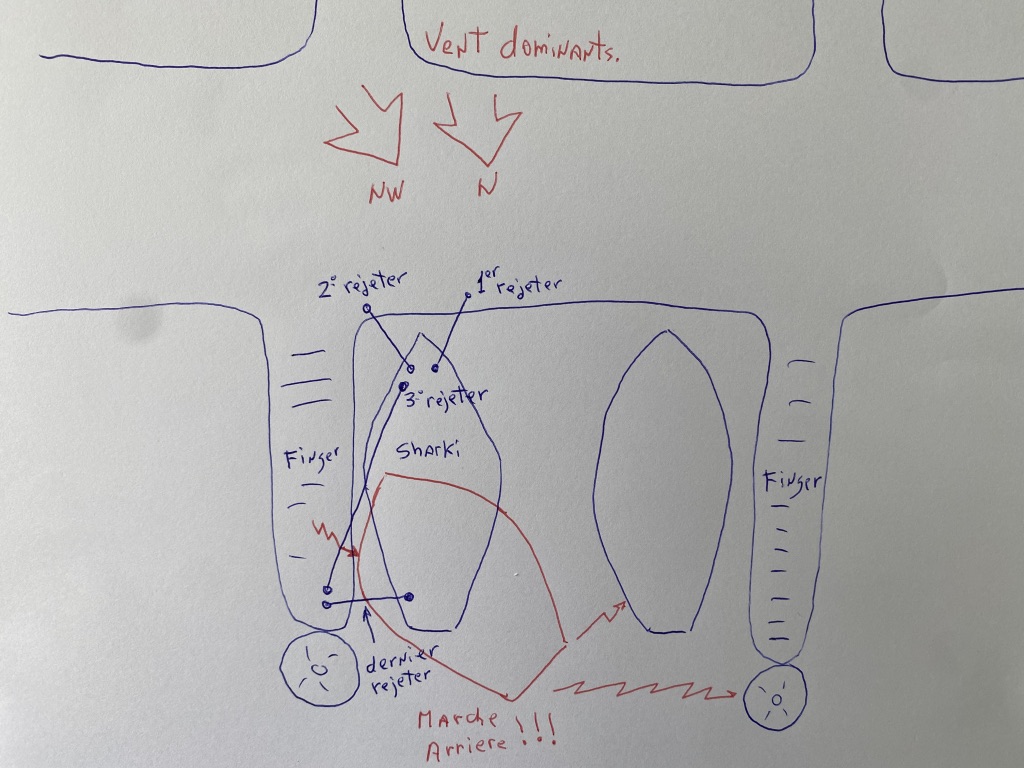 Vent dominants.
NW
N
2° rejeter
1er rejeter
3° rejeter
Sharki
Finger
Finger
dernier
rejeter
Marche
Arriere !!!